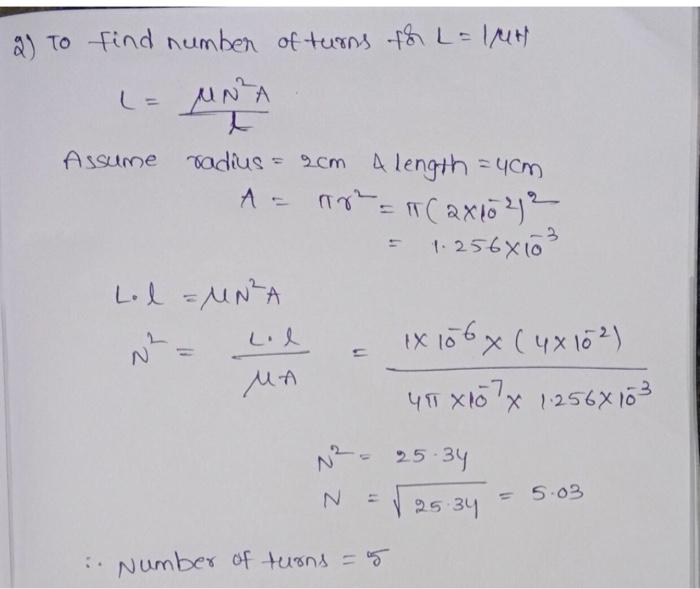 2) To find number of turns for L = 1μH
L = μN²A / l
Assume radius = 2cm & length = 4cm
A = πr² = π(2×10⁻²)²
= 1.256×10⁻³
L.l = μN²A
N² = L.l / μA = 1×10⁻⁶ × (4×10⁻²) / 4π×10⁻⁷ × 1.256×10⁻³
N² = 25.34
N = √25.34 = 5.03
∴ Number of turns = 5